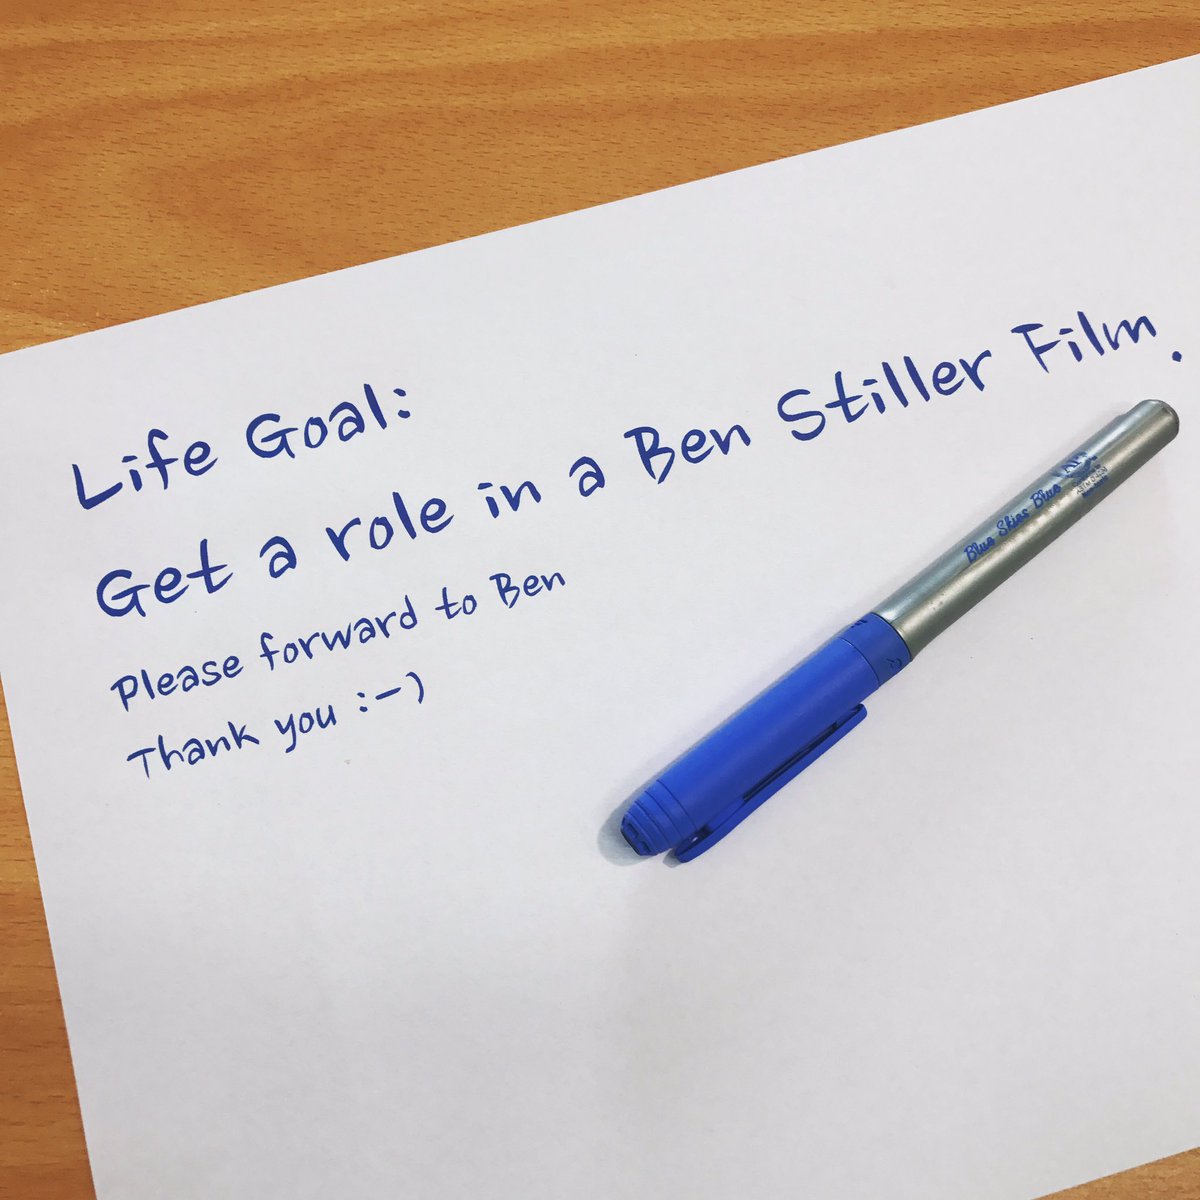 Life Goal:
Get a role in a Ben Stiller Film.
Please forward to Ben
Thank you :-)
Blue Skies Blue